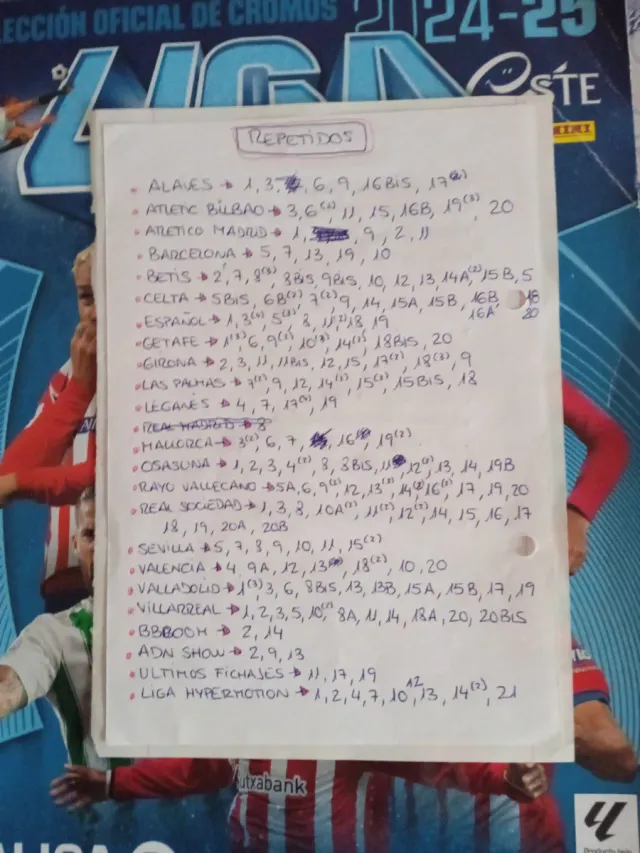 LECCIÓN OFICIAL DE CROMOS 2024-25
LIGA ESTE
PANINI
REPETIDOS
• ALAVES → 1, 3, 6, 9, 16BIS, 17
• ATLETIC BILBAO → 3, 6⁽²⁾, 11, 15, 16B, 19⁽³⁾, 20
• ATLETICO MADRID → 1, 9, 2, 11
• BARCELONA → 5, 7, 13, 19, 10
• BETIS → 2, 7, 8⁽³⁾, 8BIS, 9BIS, 10, 12, 13, 14A⁽²⁾, 15B, 5
• CELTA → 5BIS, 6B⁽²⁾, 7⁽²⁾, 9, 14, 15A, 15B, 16B, 18
• ESPAÑOL → 1, 3⁽²⁾, 5⁽²⁾, 8, 11⁽²⁾, 18, 19 16A 20
• GETAFE → 1⁽³⁾, 6, 9⁽²⁾, 10⁽³⁾, 14⁽²⁾, 18BIS, 20
• GIRONA → 2, 3, 11, 11BIS, 12, 15, 17⁽²⁾, 18⁽³⁾, 9
• LAS PALMAS → 7⁽²⁾, 9, 12, 14⁽²⁾, 15⁽²⁾, 15BIS, 18
• LEGANES → 4, 7, 17⁽²⁾, 19
• REAL MADRID → 8
• MALLORCA → 3⁽²⁾, 6, 7, 16, 19⁽²⁾
• OSASUNA → 1, 2, 3, 4⁽²⁾, 8, 8BIS, 11, 12⁽²⁾, 13, 14, 19B
• RAYO VALLECANO → 5A, 6, 9⁽²⁾, 12, 13⁽²⁾, 14⁽²⁾, 16⁽²⁾, 17, 19, 20
• REAL SOCIEDAD → 1, 3, 8, 10A⁽²⁾, 11⁽²⁾, 12⁽²⁾, 14, 15, 16, 17
18, 19, 20A, 20B
• SEVILLA → 5, 7, 8, 9, 10, 11, 15⁽²⁾
• VALENCIA → 4, 9A, 12, 13, 18⁽²⁾, 10, 20
• VALLADOLID → 1⁽³⁾, 3, 6, 8BIS, 13, 13B, 15A, 15B, 17, 19
• VILLARREAL → 1, 2, 3, 5, 10⁽²⁾, 8A, 11, 14, 18A, 20, 20BIS
• BBBOOM → 2, 14
• ADN SHOW → 2, 9, 13
• ULTIMOS FICHAJES → 11, 17, 19
• LIGA HYPERMOTION → 1, 2, 4, 7, 10, 12, 13, 14⁽²⁾, 21
utxabank